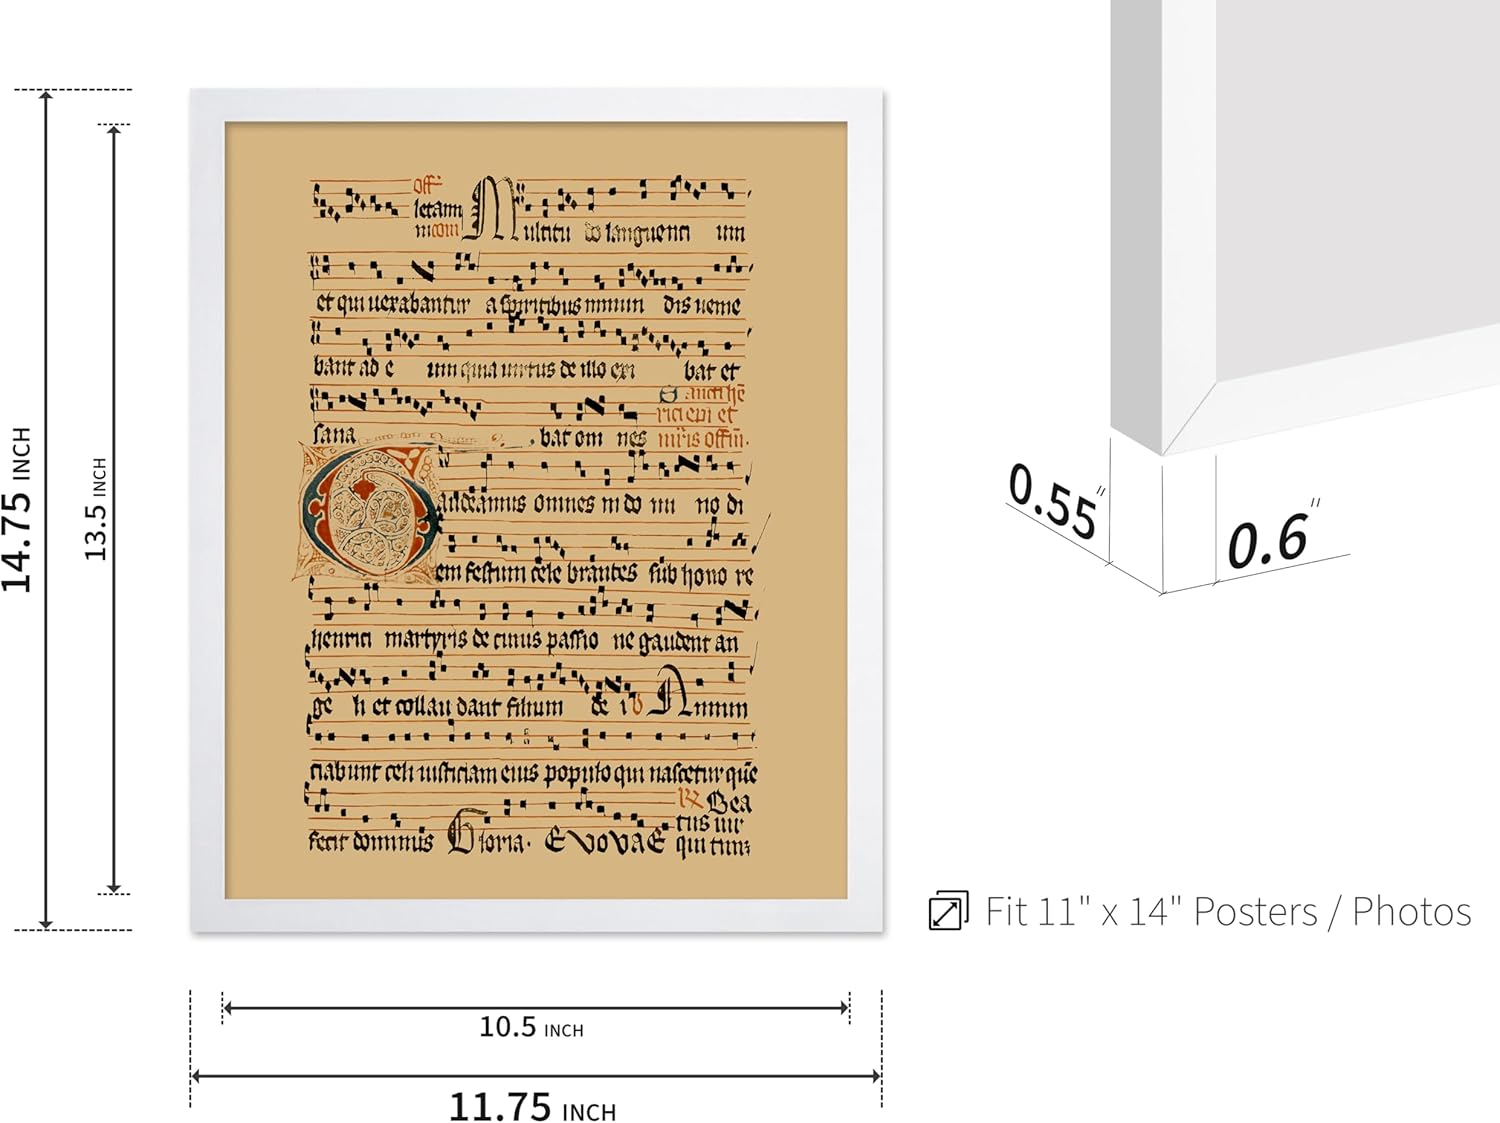 14.75 INCH
13.5 INCH
Off
letam
ultitu do languenti um
et qui uexabantur a spiritibus inmun dis uenie
bant ad e um quia uirtus de illo exi bat et
sana bat om nes
audeamus omnes in do mi no di
em festum cele brantes sub hono re
henrici martyris de cuius passio ne gaudent an
ge li et collau dant filium de i
Annun
ciabunt celi iusticiam eius populo qui nascetur que
fecit dominus Gloria. EVOVAE
Bea
tus uir
qui
10.5 INCH
11.75 INCH
0.55"
0.6"
Fit 11" x 14" Posters / Photos